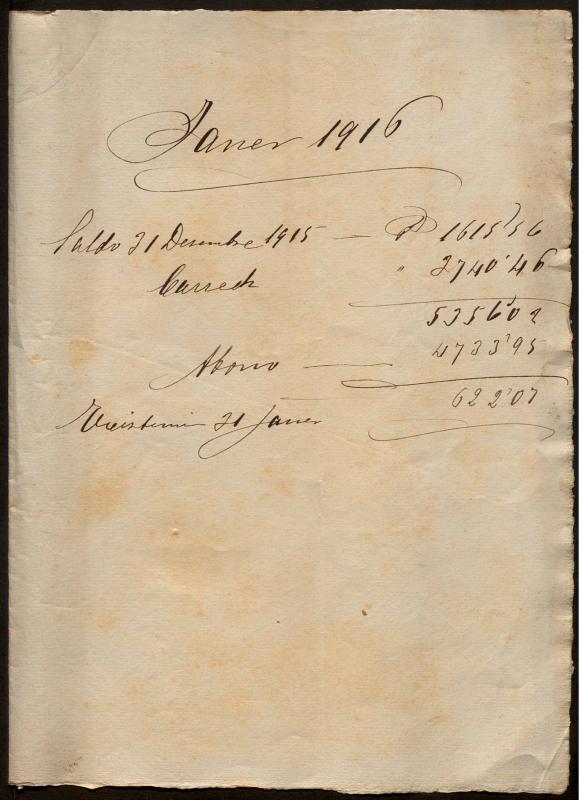 Janer 1916
Saldo 31 Desembre 1915 — P 1615'56
Carrech " 3740'46
5356'02
Abono — 4733'95
Existencia 31 Janer 622'07